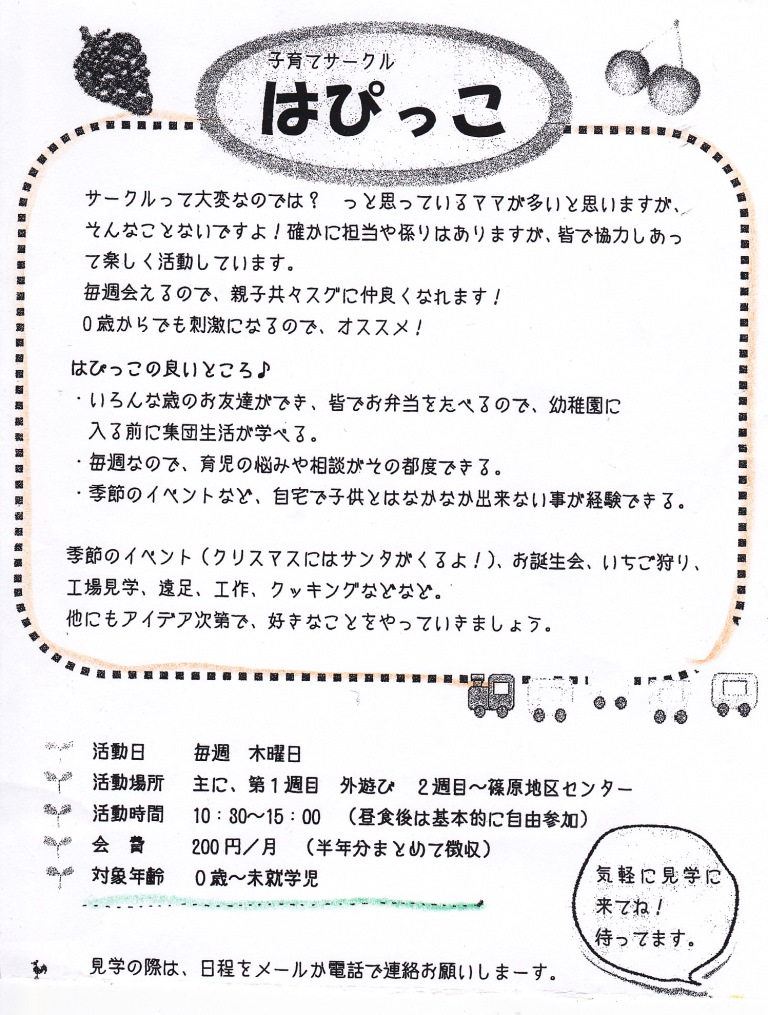 子育てサークル
はぴっこ
サークルって大変なのでは?　っと思っているママが多いと思いますが、
そんなことないですよ!確かに担当や係りはありますが、皆で協力しあっ
て楽しく活動しています。
毎週会えるので、親子共々スグに仲良くなれます!
0歳からでも刺激になるので、オススメ!
はぴっこの良いところ♪
・いろんな歳のお友達ができ、皆でお弁当をたべるので、幼稚園に
入る前に集団生活が学べる。
・毎週なので、育児の悩みや相談がその都度できる。
・季節のイベントなど、自宅で子供とはなかなか出来ない事が経験できる。
季節のイベント(クリスマスにはサンタがくるよ!)、お誕生会、いちご狩り、
工場見学、遠足、工作、クッキングなどなど。
他にもアイデア次第で、好きなことをやっていきましょう。
活動日　毎週　木曜日
活動場所　主に、第1週目　外遊び　2週目~篠原地区センター
活動時間　10:30~15:00　(昼食後は基本的に自由参加)
会　費　200円/月　(半年分まとめて徴収)
対象年齢　0歳~未就学児
気軽に見学に
来てね!
待ってます。
見学の際は、日程をメールか電話で連絡お願いしまーす。